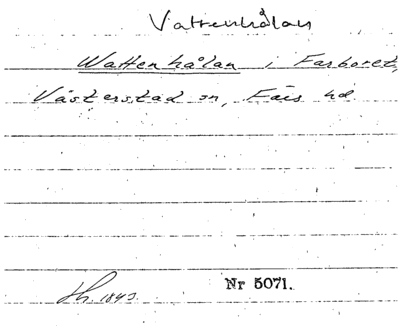 Vattenhålan
Wattenhålan i Farboret,
Västerstad sn, Färs hd
Hh. 1843.
Nr 5071.